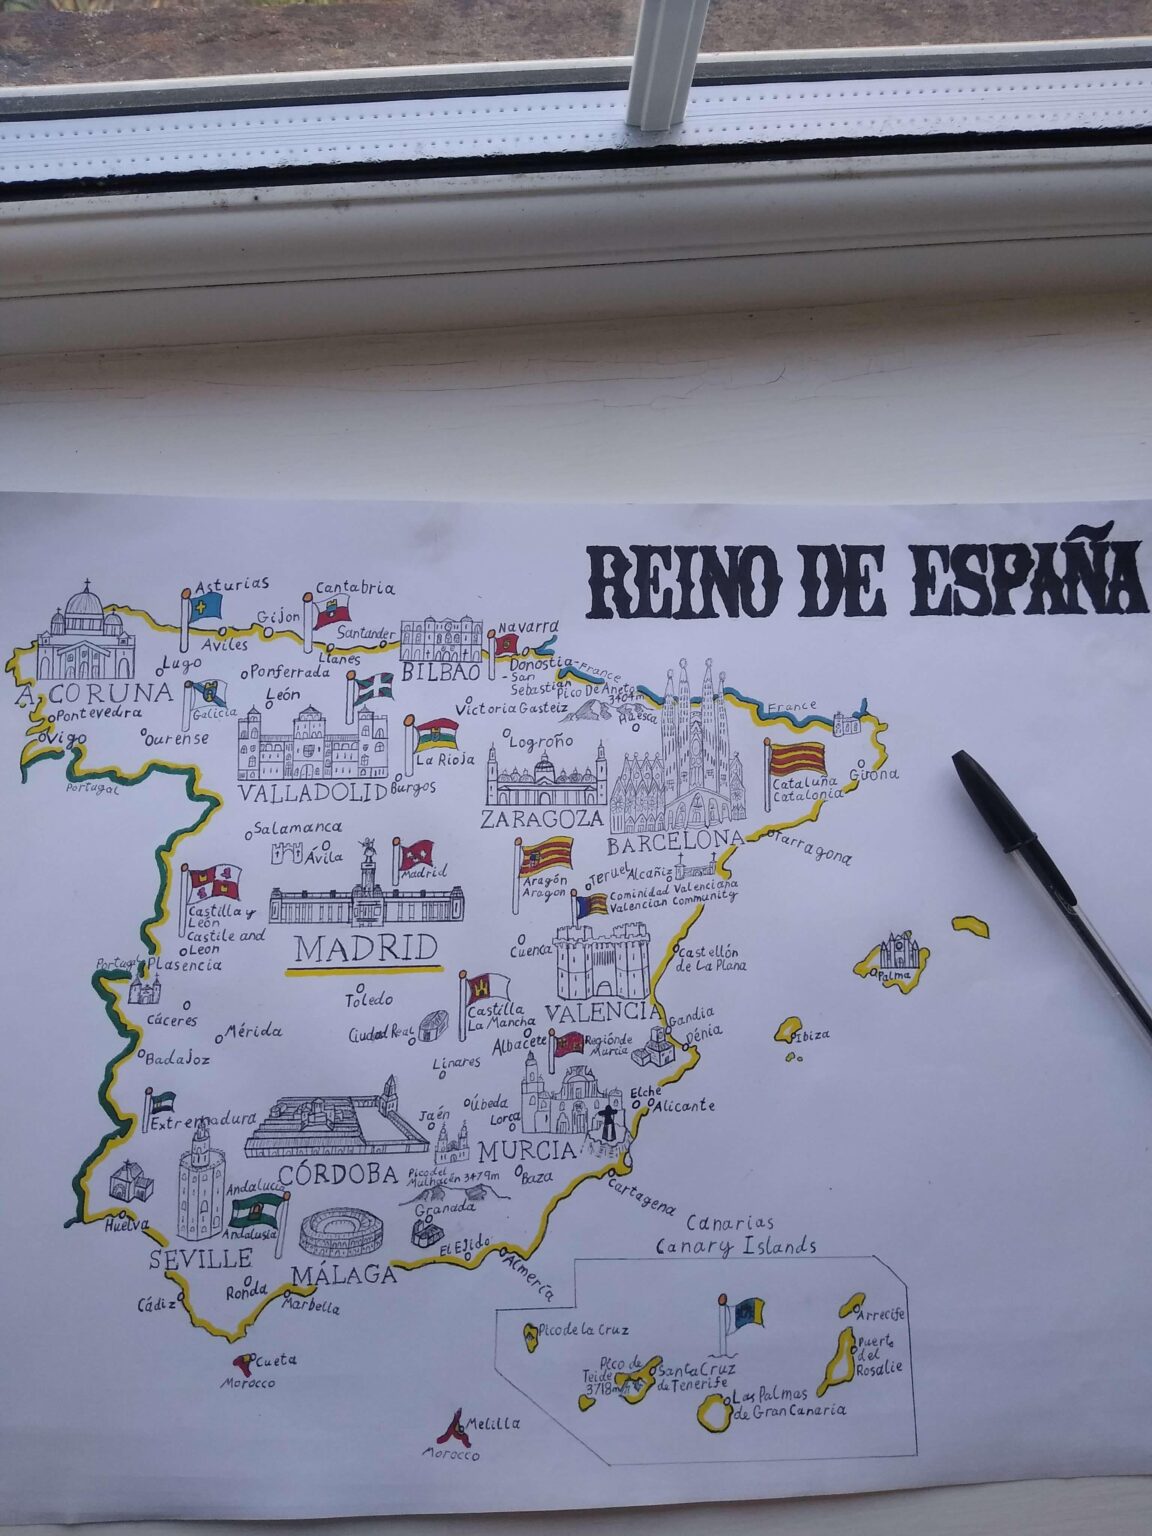 REINO DE ESPAÑA
Asturias
Cantabria
Gijon
Aviles
Santander
Llanes
Navarra
BILBAO
Donostia-
-San
Sebastian
France
Lugo
Ponferrada
A CORUNA
León
Galicia
Pontevedra
Vigo
Ourense
Portugal
Victoria Gasteiz
Pico De Aneto
3404m
Huesca
France
La Rioja
Logroño
VALLADOLID
Burgos
ZARAGOZA
BARCELONA
Cataluña
Catalonia
Girona
Tarragona
Salamanca
Ávila
Madrid
MADRID
Castilla y
León
Castile and
Leon
Aragón
Aragon
Teruel
Alcañiz
Cominidad Valenciana
Valencian Community
Cuenca
Castellón
de La Plana
Portugal
Plasencia
Cáceres
Toledo
Castilla
La Mancha
VALENCIA
Palma
Ibiza
Mérida
Ciudad Real
Albacete
Región de
Murcia
Gandia
Dénia
Badajoz
Linares
Extremadura
Jaén
Úbeda
Lorca
Elche
Alicante
CÓRDOBA
MURCIA
Pico del
Mulhacén 3479m
Baza
Cartagena
Granada
Huelva
Andalucia
Andalusia
SEVILLE
El Ejido
Almería
MÁLAGA
Cádiz
Ronda
Marbella
Canarias
Canary Islands
Cueta
Morocco
Melilla
Morocco
Pico de la Cruz
Pico de
Teide
3718m
Santa Cruz
de Tenerife
Las Palmas
de Gran Canaria
Arrecife
Puerto
del
Rosalie